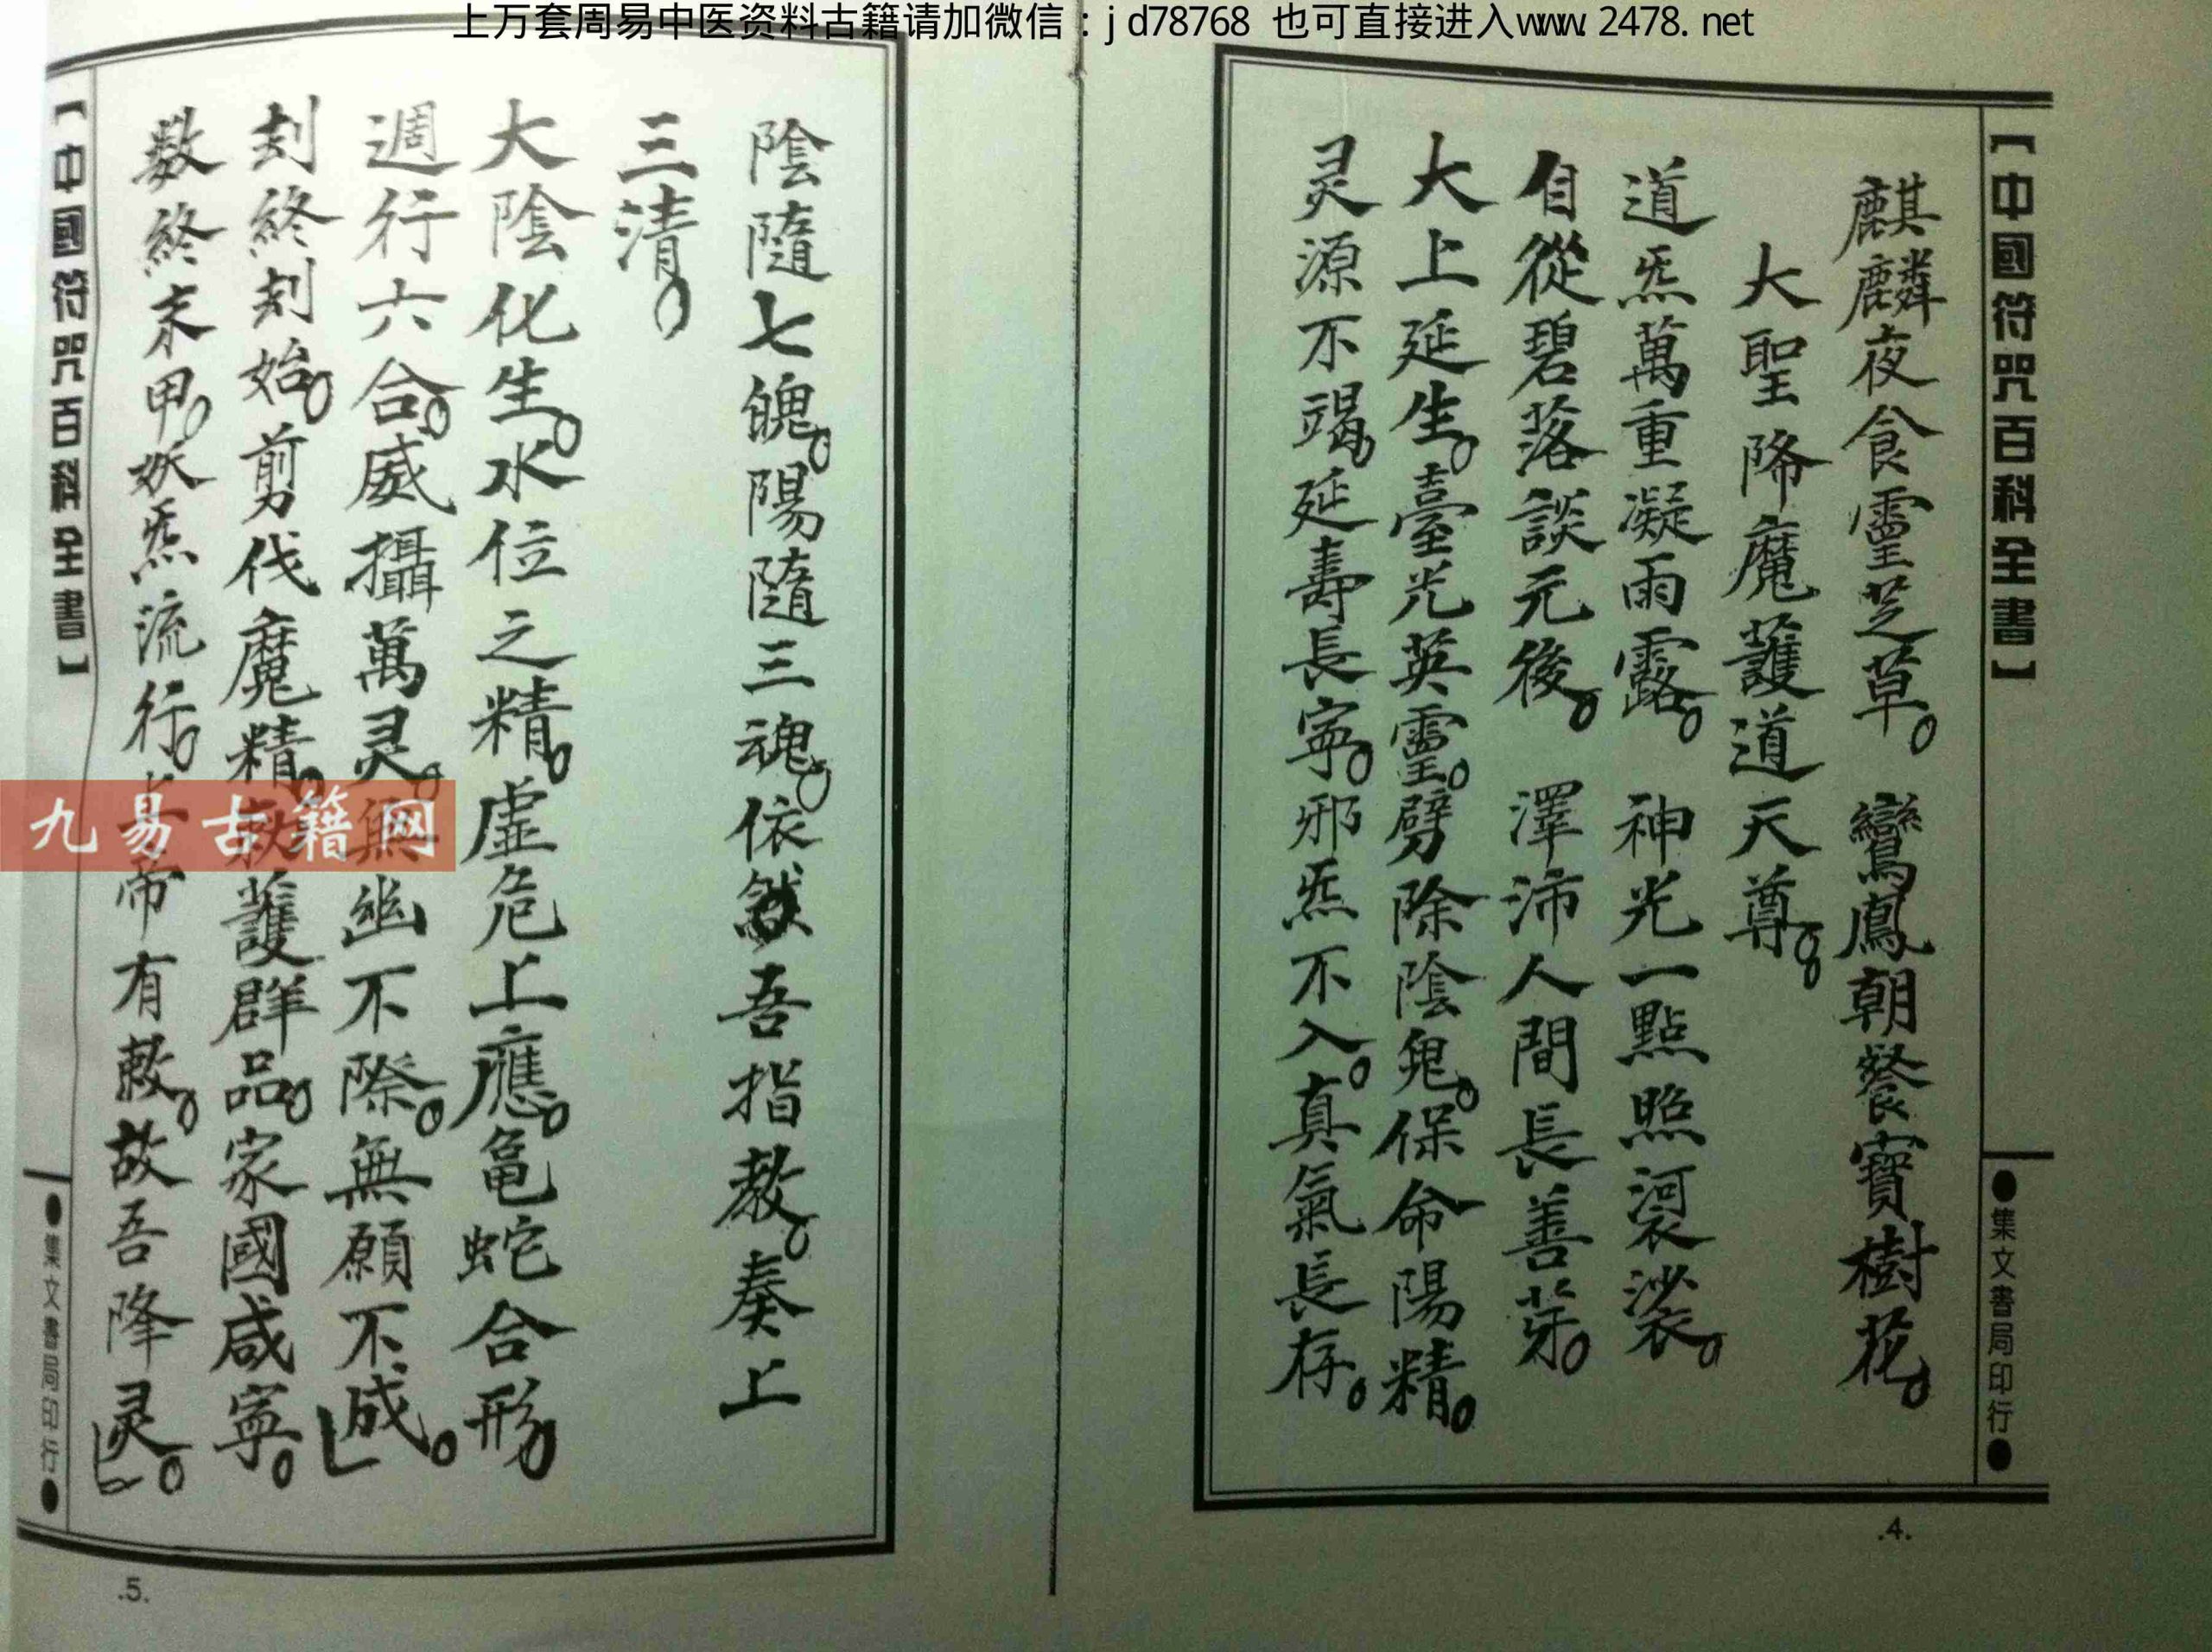 上万套周易中医资料古籍请加微信：jd78768 也可直接进入www.2478.net
【中國符咒百科全書】
●集文書局印行●
麒麟夜食靈芝草。鸞鳳朝餐寶樹花。
大聖降魔護道天尊。
道炁萬重凝雨露。神光一點照袈裟。
自從碧落談元後。澤沛人間長善芽。
大上延生。臺光英靈。劈除陰鬼。保命陽精。
灵源不竭。延壽長寧。邪炁不入。真氣長存。
.4.
陰隨七魄。陽隨三魂。依然吾指教。奏上
三清。
大陰化生。水位之精。虛危上應。龜蛇合形。
週行六合。威攝萬灵。無幽不際。無願不成。
刻終刻始。剪伐魔精。救護群品。家國咸寧。
数終末甲。妖炁流行。上帝有敕。故吾降灵。
【中國符咒百科全書】
●集文書局印行●
.5.
九易古籍网